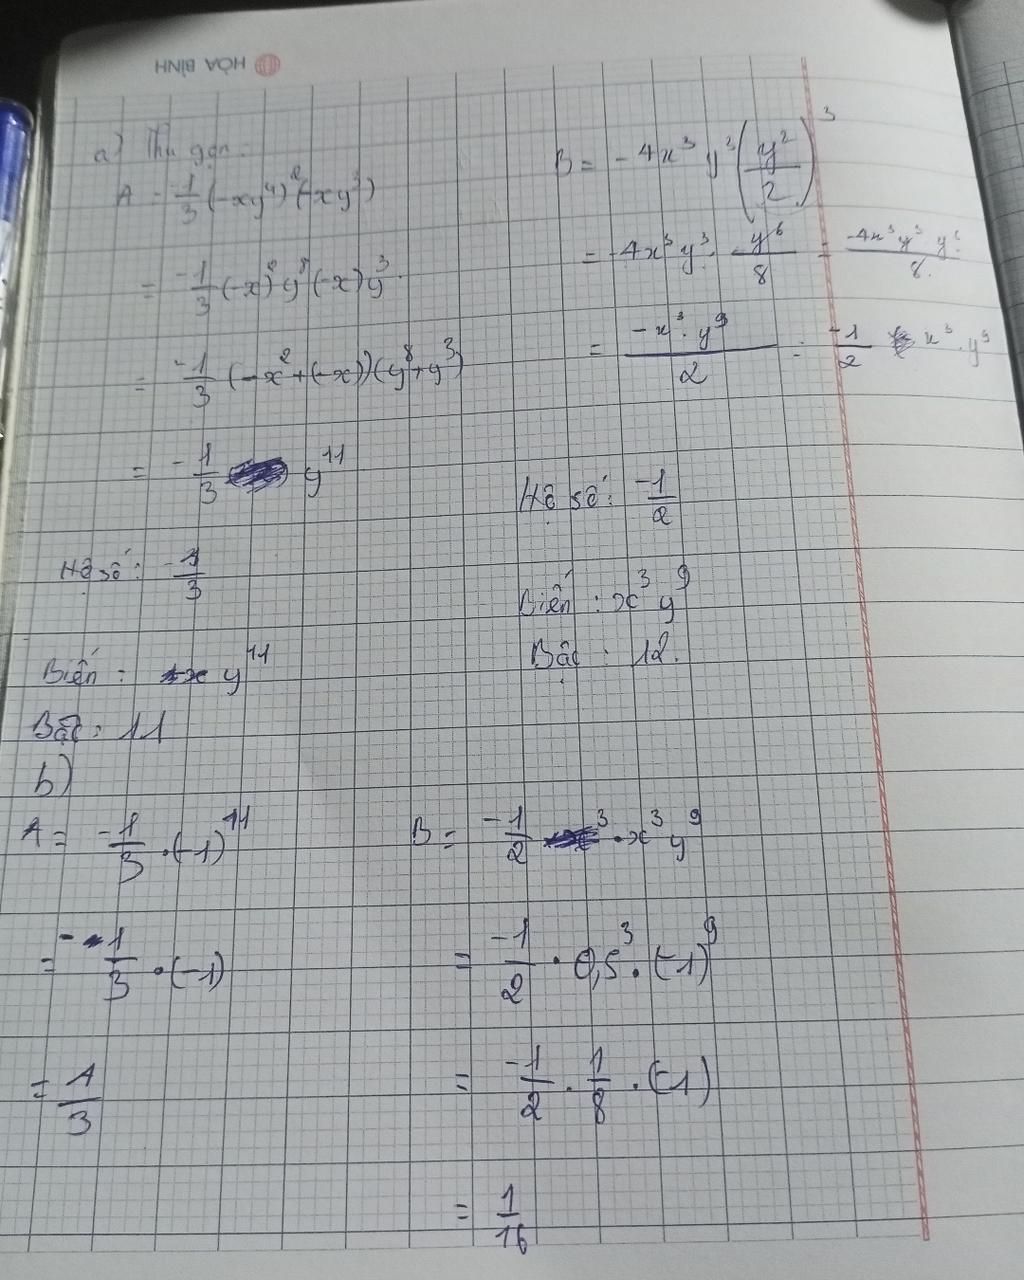 HÒA BÌNH
a) Thu gọn:
A = -1/3 (-xy⁴)² (-xy³)
= -1/3 (-x)² y⁸ (-x) y³
= -1/3 (-x² + (-x)) (y⁸ + y³)
= -1/3 y¹¹
Hệ số: -1/3
Biến: x y¹¹
Bậc: 11
B = -4x³ y³ (y²/2)³
= -4x³ y³ · y⁶/8 = -4x³ y³ y⁶/8
= -x³ · y⁹/2 = -1/2 x³ · y⁹
Hệ số: -1/2
Biến: x³ y⁹
Bậc: 12.
b)
A = -1/3 · (-1)¹¹
= -1/3 · (-1)
= 1/3
B = -1/2 ³ · x³ y⁹
= -1/2 · 0,5³ · (-1)⁹
= -1/2 · 1/8 · (-1)
= 1/16